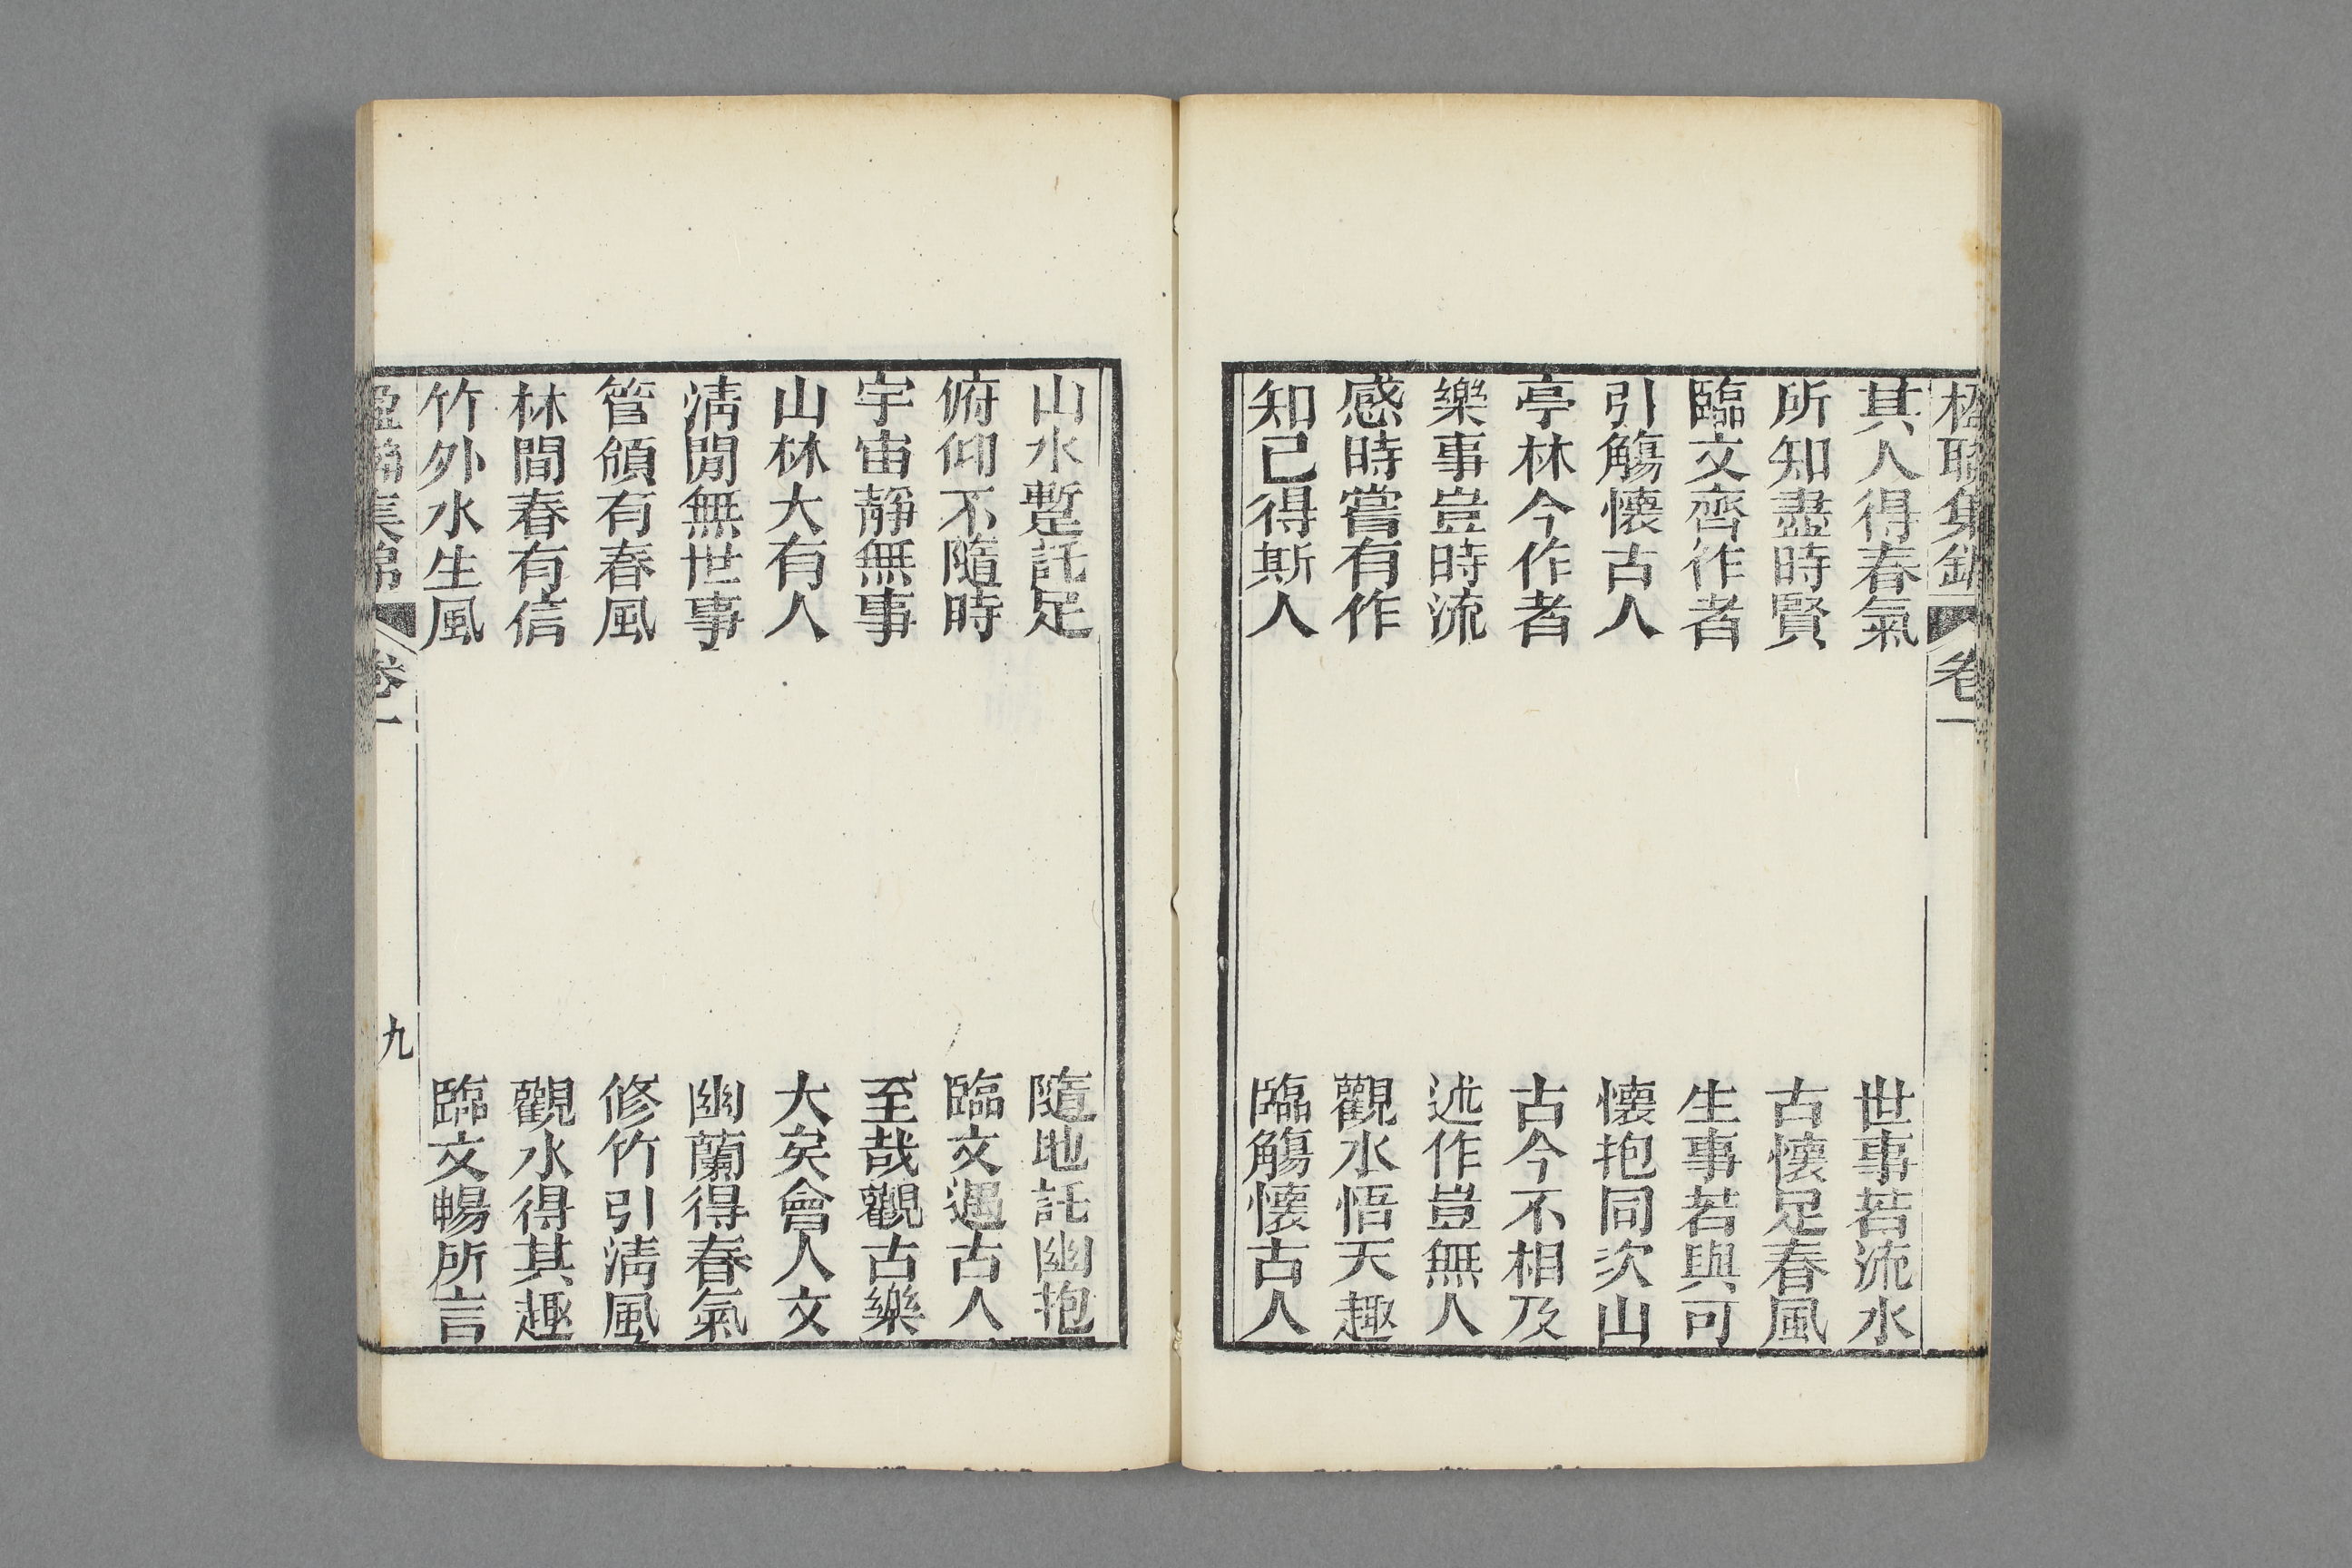 楹聯集錦 卷一
其人得春氣 世事若流水
所知盡時賢 古懷足春風
臨文齊作者 生事若與可
引觴懷古人 懷抱同次山
亭林今作者 古今不相及
樂事豈時流 述作豈無人
感時嘗有作 觀水悟天趣
知己得斯人 臨觴懷古人
山水蹔託足 隨地託幽抱
俯仰不隨時 臨文遇古人
宇宙靜無事 至哉觀古樂
山林大有人 大矣會人文
淸閒無世事 幽蘭得春氣
管領有春風 修竹引淸風
林間春有信 觀水得其趣
竹外水生風 臨文暢所言
楹聯集錦 卷一 九